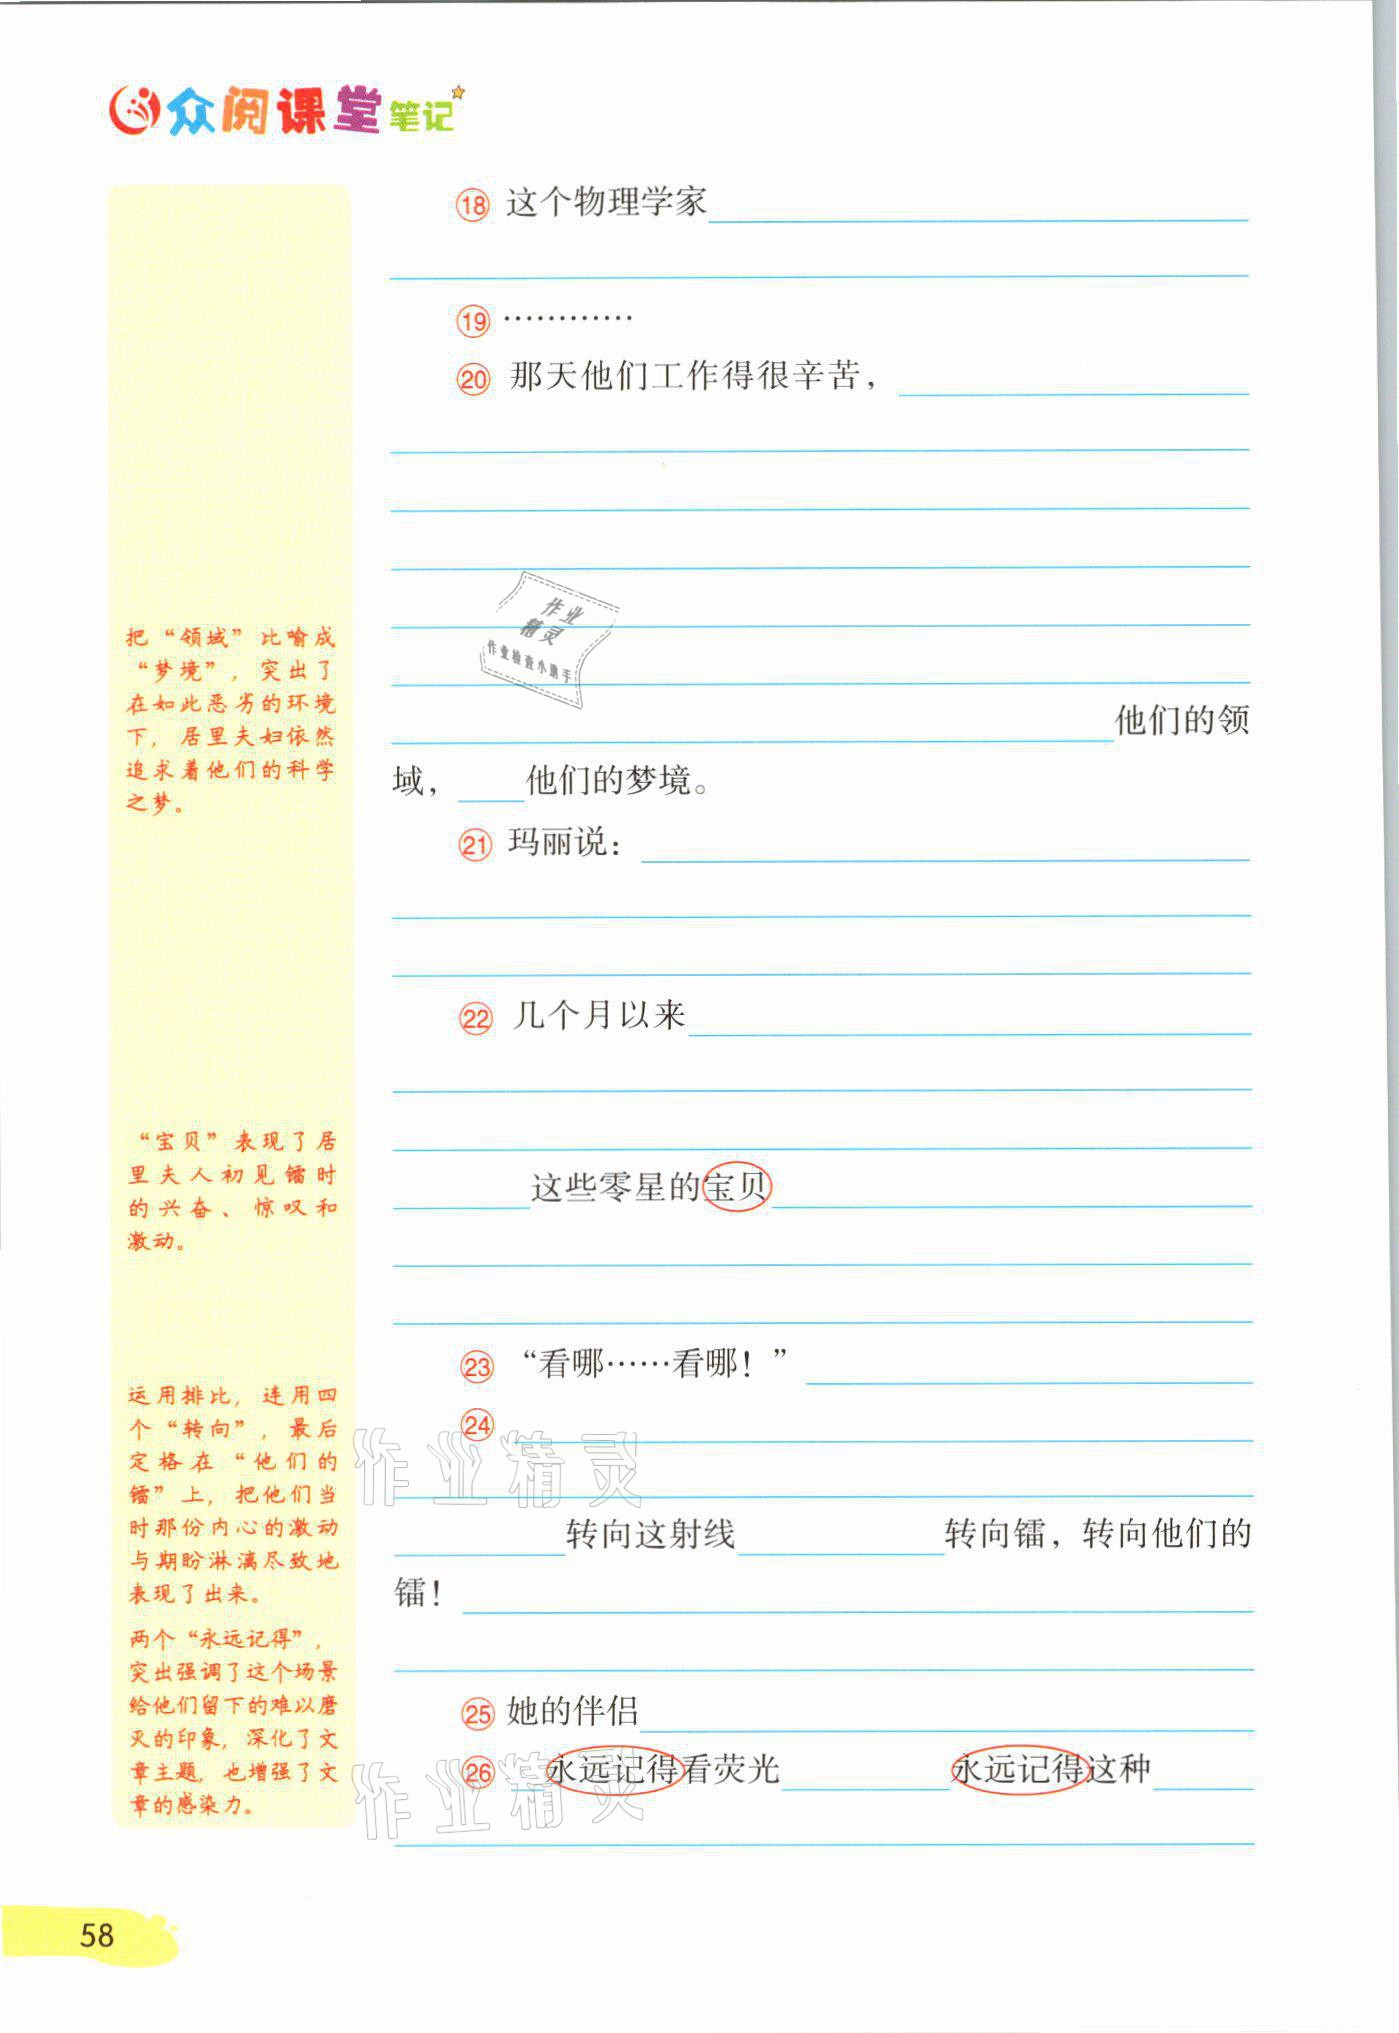 众阅课堂笔记
⑱ 这个物理学家
⑲ …………
⑳ 那天他们工作得很辛苦，
他们的领
域，他们的梦境。
㉑ 玛丽说：
㉒ 几个月以来
这些零星的宝贝
㉓ “看哪……看哪！”
㉔
转向这射线 转向镭，转向他们的
镭！
㉕ 她的伴侣
㉖ 永远记得看荧光 永远记得这种
把“领域”比喻成
“梦境”，突出了
在如此恶劣的环境
下，居里夫妇依然
追求着他们的科学
之梦。
“宝贝”表现了居
里夫人初见镭时
的兴奋、惊叹和
激动。
运用排比，连用四
个“转向”，最后
定格在“他们的
镭”上，把他们当
时那份内心的激动
与期盼淋漓尽致地
表现了出来。
两个“永远记得”，
突出强调了这个场景
给他们留下的难以磨
灭的印象，深化了文
章主题，也增强了文
章的感染力。
作业
精灵
作业检查小助手
作业精灵
作业精灵
58